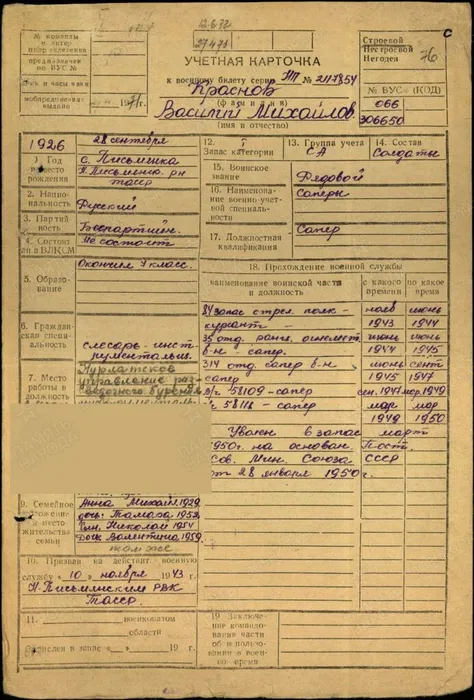 12672
27471
С
№ команды
предназначен
по ВУС №
Явка в часы явки
мобпредписание
выдано 1971г.
Строевой
Нестроевой
Негоден
76
УЧЕТНАЯ КАРТОЧКА
к военному билету серии ТП № 2117854
Краснов
(фамилия)
Василий Михайлов.
(имя и отчество)
№ ВУС (КОД)
066
306650
1926
28 сентября
1) Год и место рождения
с. Письмянка
Н. Письмянс. р-н
ТАССР
2. Национальность
Русский
3. Партийность
Беспартийн.
4. Состоит ли в ВЛКСМ
Не состоит
5. Образование
Окончил 7 класс.
6. Гражданская специальность
слесарь-инструментальщ.
7. Место работы и должность
Нурлатское
управление раз-
ведочного бурения
12. Запас категории
I
13. Группа учета
СА
14. Состав
Солдаты
15. Воинское звание
Рядовой
16. Наименование военно-учетной специальности
Саперы
17. Должностная квалификация
Сапер
18. Прохождение военной службы
наименование воинской части и должность
с какого времени
по какое время
84 запас стрел. полк - нояб 1943 июнь 1944
курсант -
35 отд. ранц. огнемет. июнь 1944 июнь 1945
б-н сапер.
314 отд. сапер б-н июнь 1945 сент 1947
сапер
в/ч 58109 - сапер сен. 1947 мар. 1949
в/ч 58118 - сапер мар 1949 мар 1950
Уволен в запас март
1950г. на основан Пост.
Сов. Мин. Союза ССР
от 28 января 1950г.
9. Семейное положение и место жительства семьи
Анна Михайл. 1929
дочь: Тамара 1952
сын. Николай 1954
Дочь Валентина 1959.
том же
10. Призван на действит. военную
службу "10" ноября 1943 г.
Н-Письмянским РВК
ТАССР
11. военкоматом
области
Зачислен в запас « » 19 г.
19. Заключение командования части об использовании в военное время